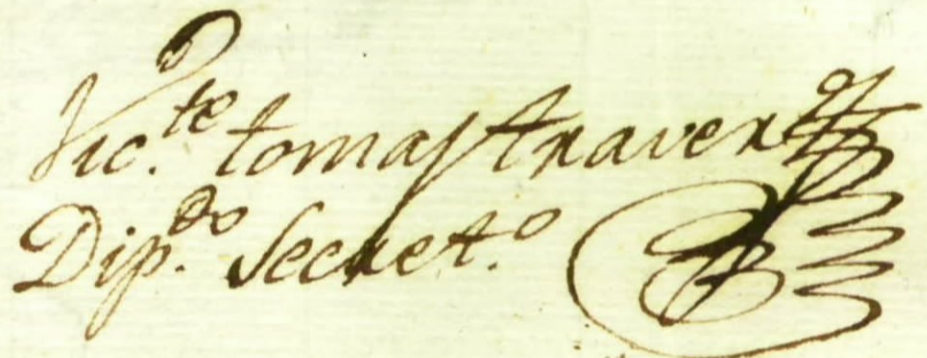 Vic.te tomas traver
Dip.do Secret.o